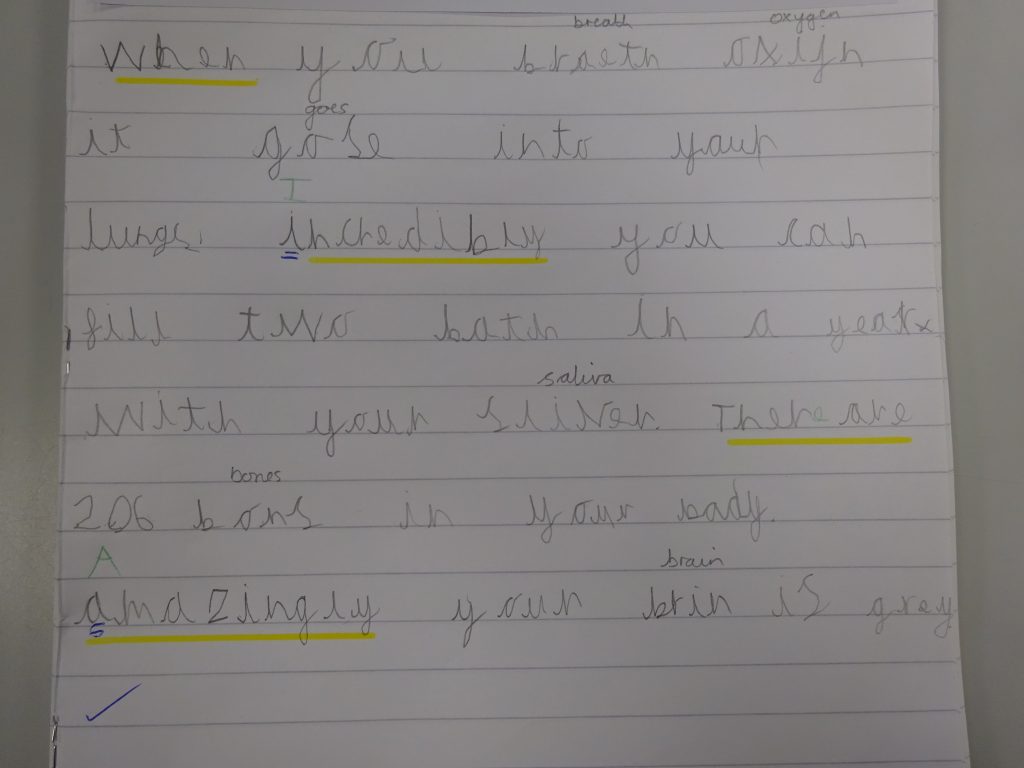 breath oxygen
When you braeth oxifn
goes
it gose into your
I
lungs. incredibly you can
fill two bath in a year
saliva
With your sliver. There are
bones
206 bons in your body.
A brain
amazingly your brin is grey